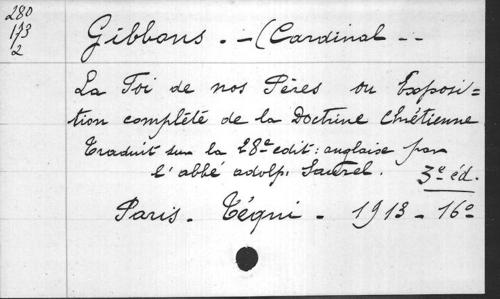 280
173
2
Gibbons. - (Cardinal --
La Foi de nos Pères ou Exposi=
tion complète de la Doctrine Chrétienne
Traduit sur la 28e edit: anglaise par
l'abbé adolp. Saurel. 3e éd.
Paris. Téqui - 1913 - 16o